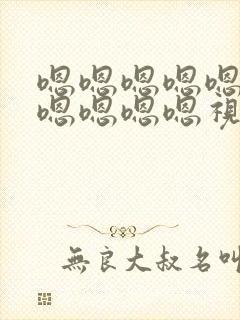 嗯嗯嗯嗯嗯
嗯嗯嗯嗯視
無良大叔名叫